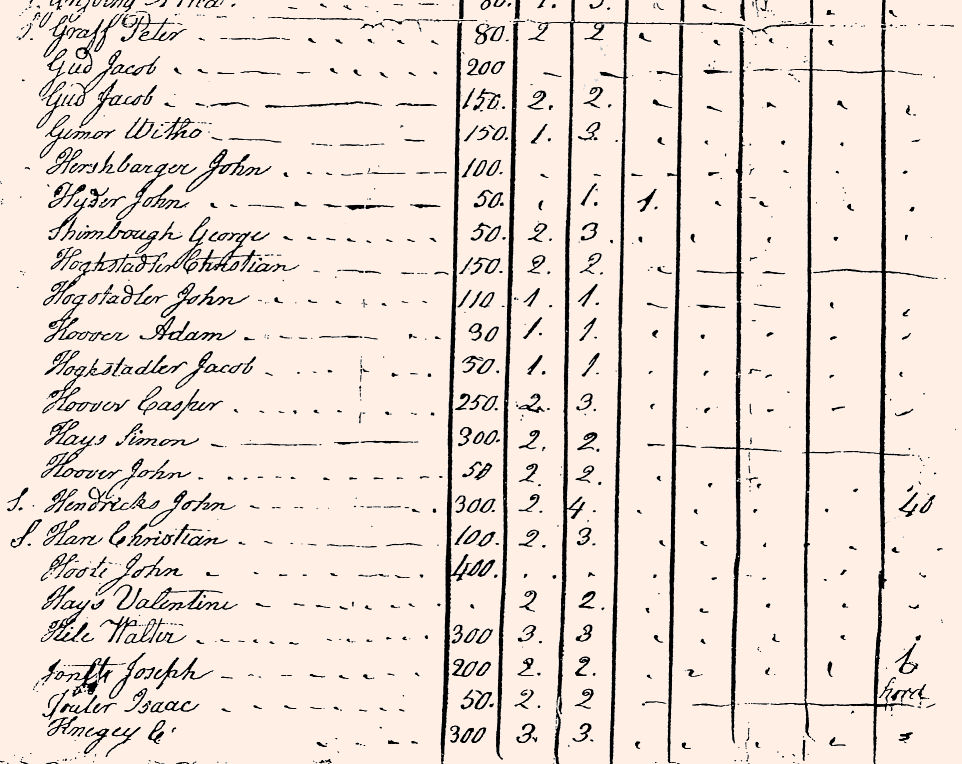 80. 1. 3.
S. Graff Peter 80. 2 2
Gud Jacob 200
Gud Jacob 150. 2. 2.
Gimor Witho 150. 1. 3.
Hershbarger John 100.
Hyder John 50. 1. 1.
Shimbough George 50. 2. 3
Hoghstadler Christian 150. 2. 2.
Hogstadler John 110 1. 1.
Hoover Adam 30 1. 1.
Hoghstadler Jacob 50. 1. 1.
Hoover Casper 250. 2. 3.
Hays Simon 300. 2. 2.
Hoover John 50 2. 2.
S. Hendricks John 300. 2. 4. 40
S. Hare Christian 100. 2. 3.
John 400.
Hays Valentine 2 2.
Hile Walter 300 3. 3
Joseph 200 2. 2. 6
Isaac 50. 2. 2 hord
300 3. 3.